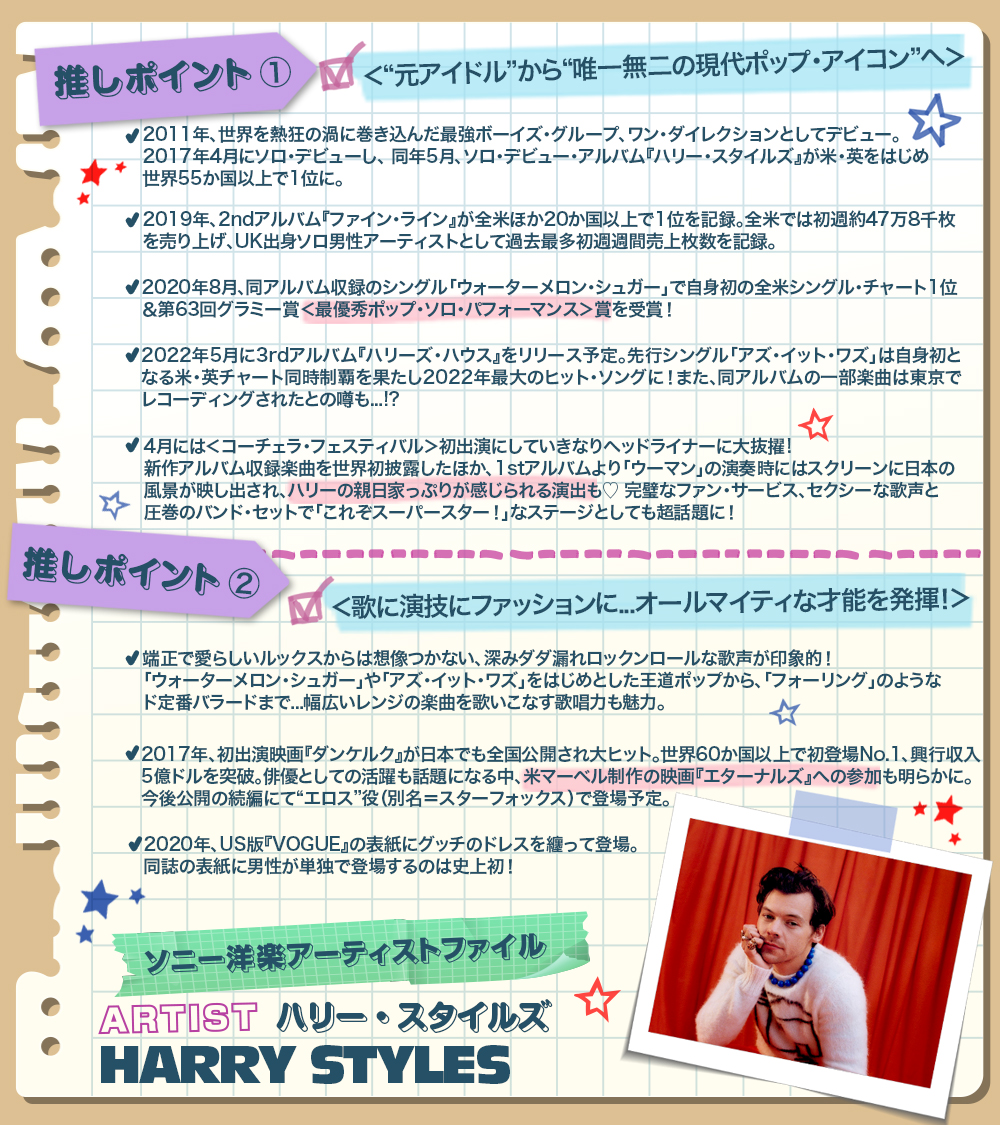 推しポイント①
<“元アイドル”から“唯一無二の現代ポップ・アイコン”へ>
2011年、世界を熱狂の渦に巻き込んだ最強ボーイズ・グループ、ワン・ダイレクションとしてデビュー。
2017年4月にソロ・デビューし、同年5月、ソロ・デビュー・アルバム『ハリー・スタイルズ』が米・英をはじめ
世界55か国以上で1位に。
2019年、2ndアルバム『ファイン・ライン』が全米ほか20か国以上で1位を記録。全米では初週約47万8千枚
を売り上げ、UK出身ソロ男性アーティストとして過去最多初週週間売上枚数を記録。
2020年8月、同アルバム収録のシングル「ウォーターメロン・シュガー」で自身初の全米シングル・チャート1位
&第63回グラミー賞<最優秀ポップ・ソロ・パフォーマンス>賞を受賞!
2022年5月に3rdアルバム『ハリーズ・ハウス』をリリース予定。先行シングル「アズ・イット・ワズ」は自身初と
なる米・英チャート同時制覇を果たし2022年最大のヒット・ソングに!また、同アルバムの一部楽曲は東京で
レコーディングされたとの噂も...!?
4月には<コーチェラ・フェスティバル>初出演にしていきなりヘッドライナーに大抜擢!
新作アルバム収録楽曲を世界初披露したほか、1stアルバムより「ウーマン」の演奏時にはスクリーンに日本の
風景が映し出され、ハリーの親日家っぷりが感じられる演出も♡ 完璧なファン・サービス、セクシーな歌声と
圧巻のバンド・セットで「これぞスーパースター!」なステージとしても超話題に!
推しポイント②
<歌に演技にファッションに...オールマイティな才能を発揮!>
端正で愛らしいルックスからは想像つかない、深みダダ漏れロックンロールな歌声が印象的!
「ウォーターメロン・シュガー」や「アズ・イット・ワズ」をはじめとした王道ポップから、「フォーリング」のような
ド定番バラードまで...幅広いレンジの楽曲を歌いこなす歌唱力も魅力。
2017年、初出演映画『ダンケルク』が日本でも全国公開され大ヒット。世界60か国以上で初登場No.1、興行収入
5億ドルを突破。俳優としての活躍も話題になる中、米マーベル制作の映画『エターナルズ』への参加も明らかに。
今後公開の続編にて“エロス”役(別名=スターフォックス)で登場予定。
2020年、US版『VOGUE』の表紙にグッチのドレスを纏って登場。
同誌の表紙に男性が単独で登場するのは史上初!
ソニー洋楽アーティストファイル
ARTIST ハリー・スタイルズ
HARRY STYLES